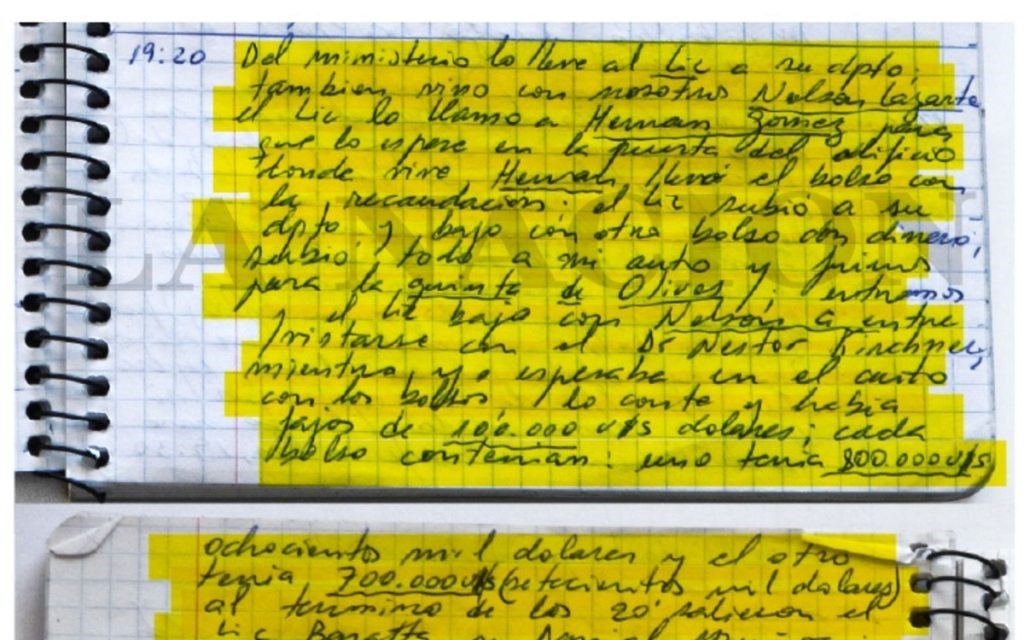 19:20 Del ministerio lo lleve al Lic a su dpto,
tambien vino con nosotros Nelson Lazarte
el Lic lo llamo a Hernan Gomez para
que lo espere en la puerta del edificio
donde vive Hernan llevó el bolso con
la recaudación: el Lic subió a su
dpto y bajo con otro bolso con dinero,
subio todo a mi auto y fuimos
para la quinta de Olivos; entramos
y el Lic bajo con Nelson a entre
vistarse con el Dr Nestor Kirchner,
mientra yo esperaba en el auto
con los bolsos lo conte y habia
fajos de 100.000 u$s dolares; cada
bolso contenian: uno tenia 800.000 u$s
ochocientos mil dolares y el otro
tenia 700.000 u$s (setecientos mil dolares)
al termino de los 20' salieron el
Lic Baratta y Daniel
LA NACION